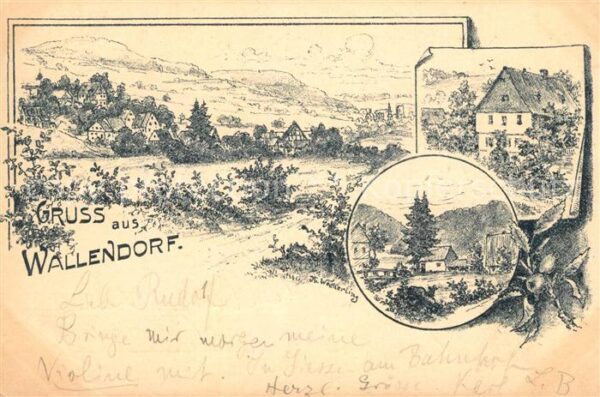 GRUSS aus
WALLENDORF.
Lieb. Rudolf
Bringe mir morgen meine
Violine mit. am Bahnhof
Herzl. Grüsse. Karl. L. B